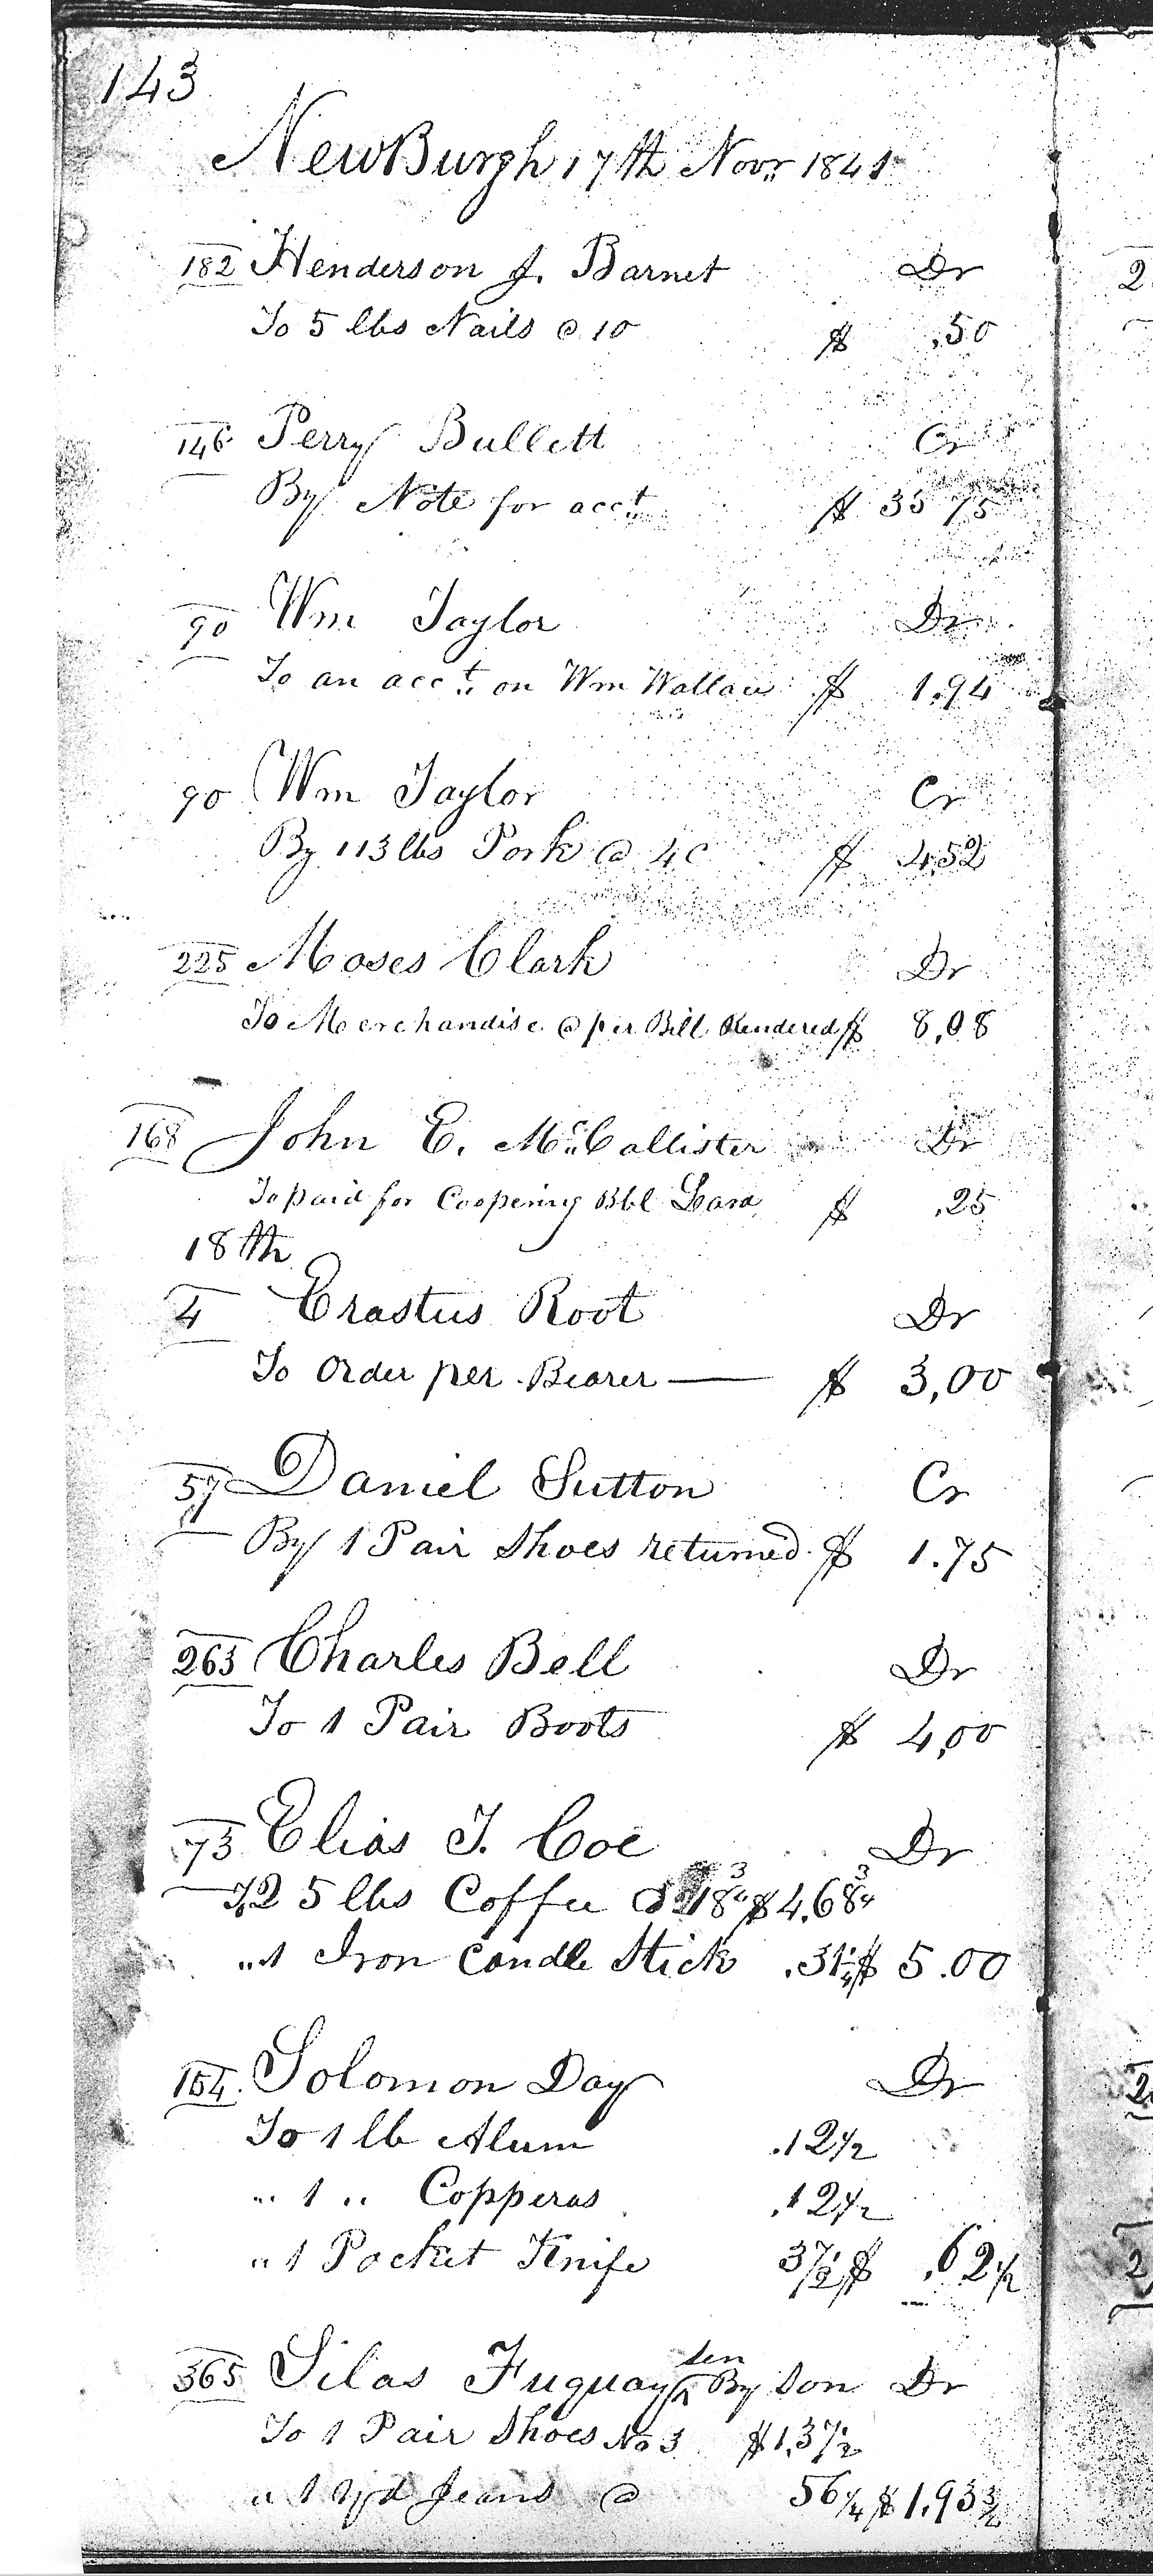 143
NewBurgh 17th Novr 1841
182 Henderson J. Barnet Dr
To 5 lbs Nails @ 10 $ .50
146 Perry Bullett Cr
By Note for acct $ 35 75
90 Wm Taylor Dr
To an acct on Wm Wallace $ 1.94
90 Wm Taylor Cr
By 113 lbs Pork @ 4c $ 4.52
225 Moses Clark Dr
To Merchandise @ per Bill Rendered $ 8,08
168 John E. McCallister Dr
To paid for Coopering Bbl Lard $ .25
18th
4 Erastus Root Dr
To Order per Bearer — $ 3,00
57 Daniel Sutton Cr
By 1 Pair Shoes returned $ 1.75
263 Charles Bell Dr
To 1 Pair Boots $ 4,00
73 Elias T. Coe Dr
To 25 lbs Coffee @ 18 3/4 $4.68 3/4
" 1 Iron Candle Stick .31 1/4 $ 5.00
154 Solomon Day Dr
To 1 lb Alum .12 1/2
" 1 " Copperas .12 1/2
" 1 Pocket Knife 37 1/2 $ .62 1/2
365 Silas Fuquay sen By Son Dr
To 1 Pair Shoes No 3 $1,37 1/2
" 1 yd Jeans @ 56 1/4 $1.93 3/2